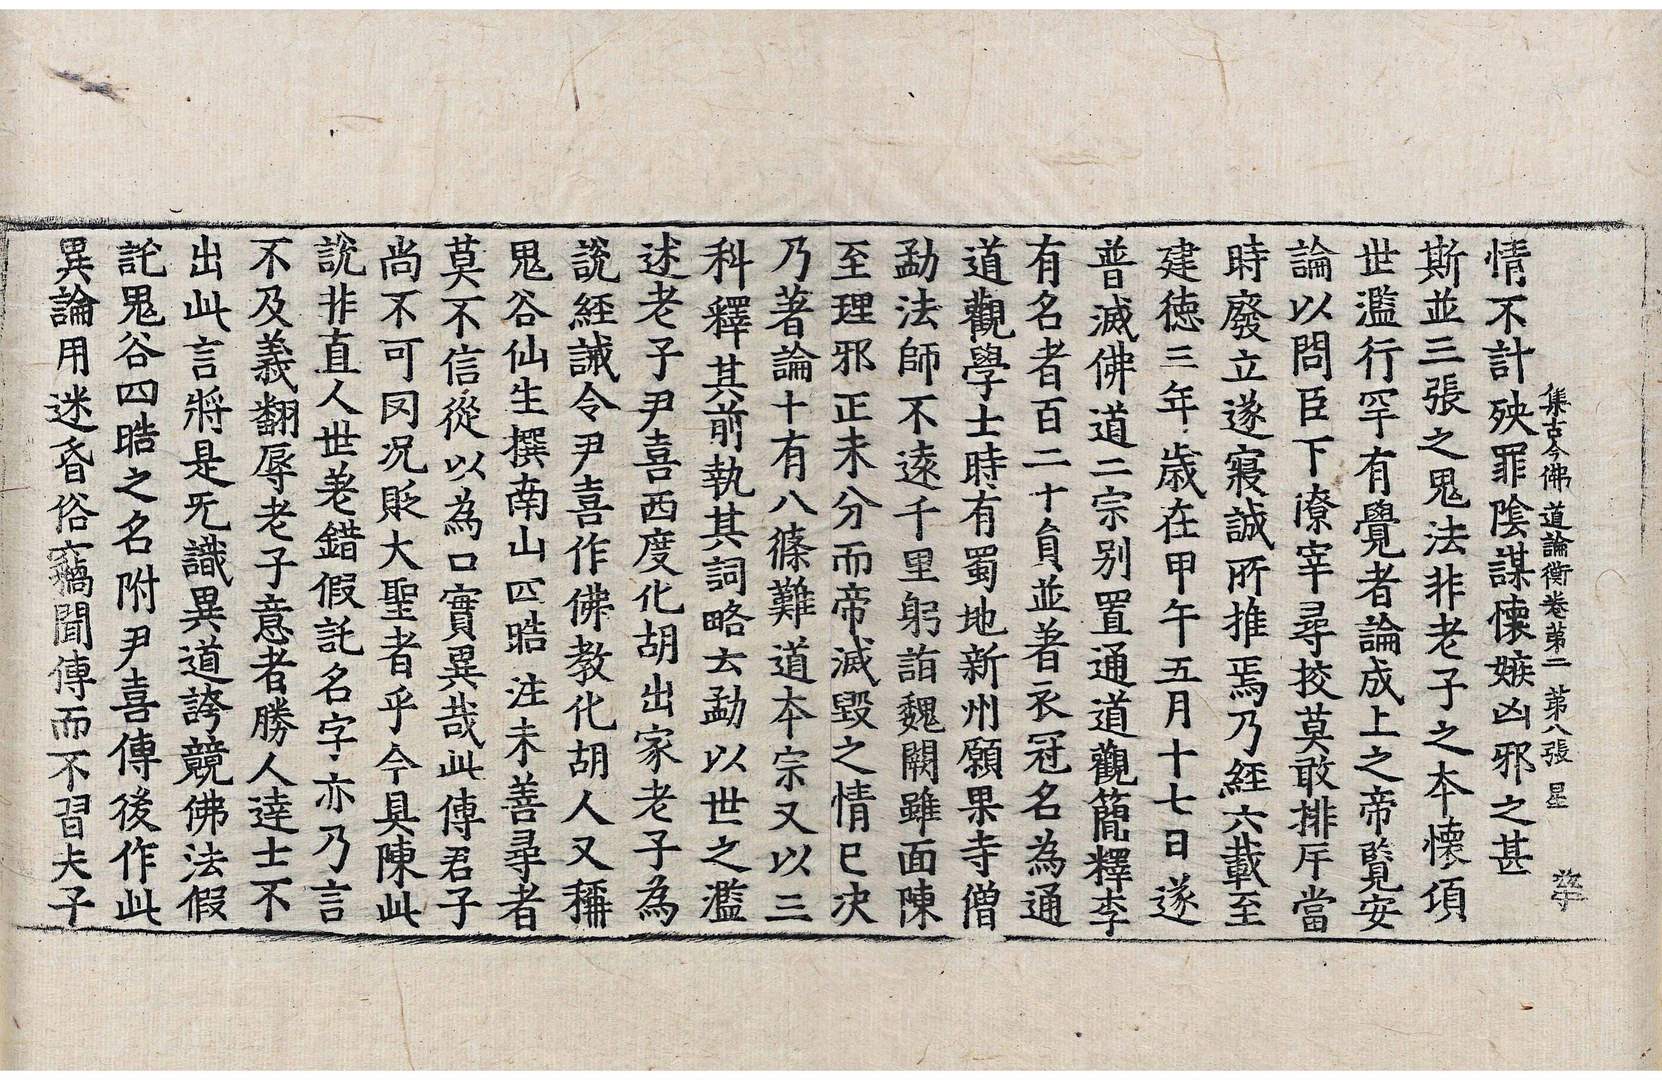 集古今佛道論衡卷第二 第八張 星
情不計殃罪陰謀懷嫉凶邪之甚
斯並三張之鬼法非老子之本懷頃
世濫行罕有覺者論成上之帝覧安
論以問臣下寮宰尋挍莫敢排斥當
時廢立遂寢誠所推焉乃經六載至
建徳三年歳在甲午五月十七日遂
普滅佛道二宗别置通道觀簡釋李
有名者百二十貟並著衣冠名為通
道觀學士時有蜀地新州願果寺僧
勐法師不遠千里躬詣魏闕雖面陳
至理邪正未分而帝滅毀之情已决
乃著論十有八條難道本宗又以三
科釋其前執其詞略云勐以世之濫
述老子尹喜西度化胡出家老子為
說經誡令尹喜作佛教化胡人又稱
鬼谷仙生撰南山四晧注未善尋者
莫不信從以為口實異哉此傳君子
尚不可罔况貶大聖者乎今具陳此
說非直人世差錯假託名字亦乃言
不及義翻辱老子意者勝人達士不
出此言將是无識異道誇競佛法假
託鬼谷四晧之名附尹喜傳後作此
異論用迷昏俗竊聞傳而不習夫子